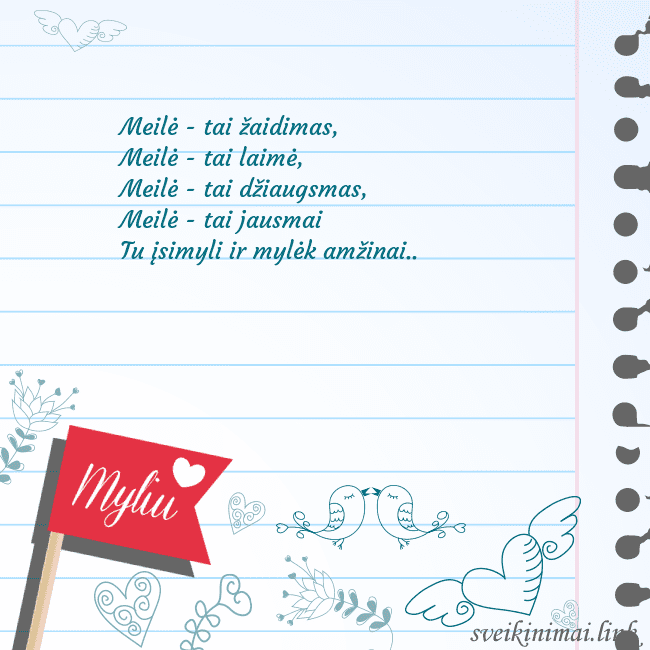 Meilė - tai žaidimas,
Meilė - tai laimė,
Meilė - tai džiaugsmas,
Meilė - tai jausmai
Tu įsimyli ir mylėk amžinai..
Myliu
sveikinimai.link